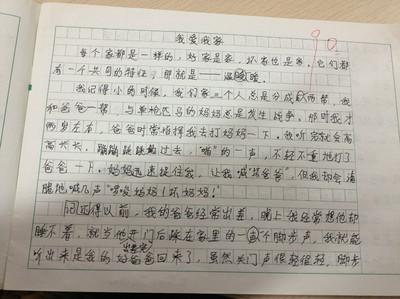 我爱我家
90
每个家都是一样的，好家是家，坏家也是家，它们都
有一个共同的特征，那就是——温暖。
我记得小的时候，我们家三个人总是分成两帮，我
和爸爸一帮，与单枪匹马的妈妈总是发生战争。那时我才
两岁左右，爸爸时常指挥我去打妈妈一下，我听完就会高
高兴兴，蹦蹦跳跳的过去，"啪"的一声，不轻不重地打了
爸爸一下。妈妈迅速捉住我，让我喊"坏爸爸"，但我却会清
脆地喊几声"妈妈！坏妈妈！"
记得以前，我的爸爸经常出差，晚上我经常想他却
睡不着，就当他开门后踩在家里的一个脚步声，我就能
听出来是我的好爸爸回来了，虽然关门声很轻很轻，脚步